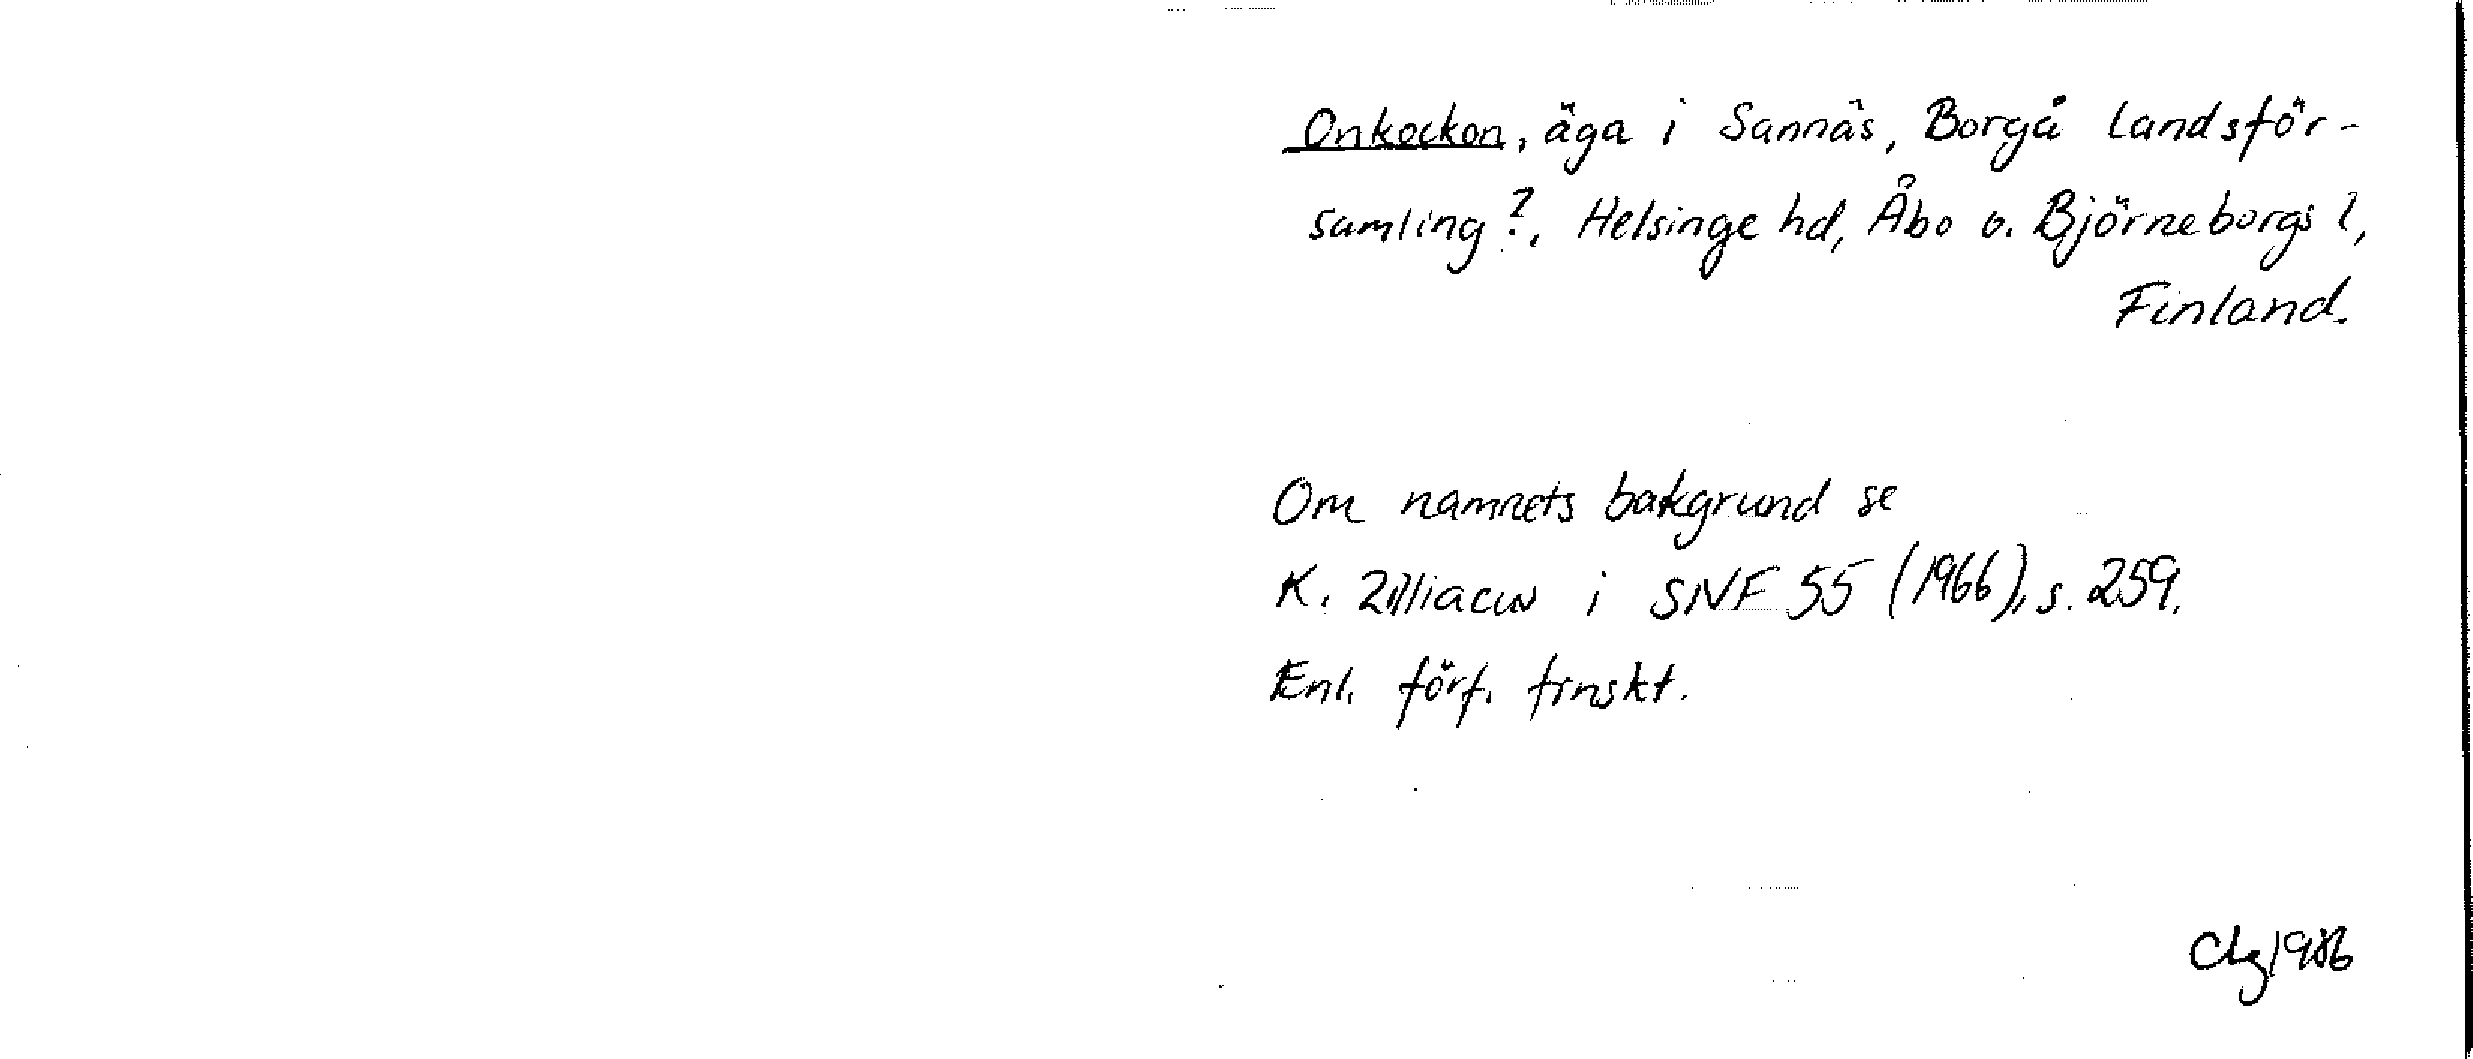 Onkeckon, äga i Sannäs, Borgå landsför-
samling?, Helsinge hd, Åbo o. Björneborgs l,
Finland.
Om namnets bakgrund se
K. Zilliacus i SNF 55 (1966), s. 259.
Enl. förf. finskt.
1986